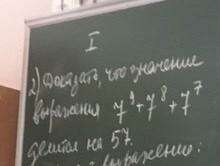 I
2) Доказать, что значение
выражения 7⁹ + 7⁸ + 7⁷
делится на 57.
выражение: